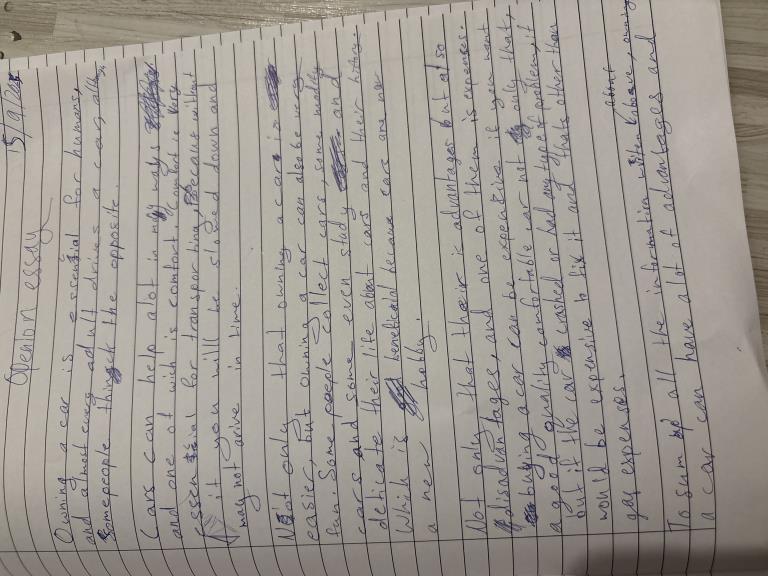 15/9/202
Openion essay
Owning a car is essential for humans,
and almost every adult drives a car, although
somepeople think the opposite.
Cars can help alot in many ways
and one of wich is comfort. Comfort is very
essensial for transporting, Because without
it you will be slowed down and
may not arive in time.
Not only that owning a car is
easier, but owning a car can also be very
fun. Some people collect cars, some modify
cars and some even study and
deticate their life about cars and their history
Which is beneficial because cars are now
a new hobby.
Not only that their is advantages but also
disadvantages, and one of them is expenses.
buying a car can be expentive if you want
a good quality comfortable car not only that,
but if the car crashed or had any type of problem, it
would be expensive to fix it and thats other than
gas expenses. about
To sum up all the information writen above, owning
a car can have alot of advantages and